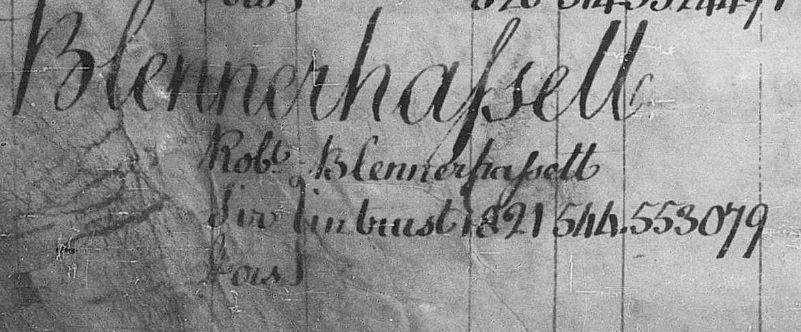 Blennerhaſsett
Robt. Blennerhaſsett
Sir in trust 1821 544.553079